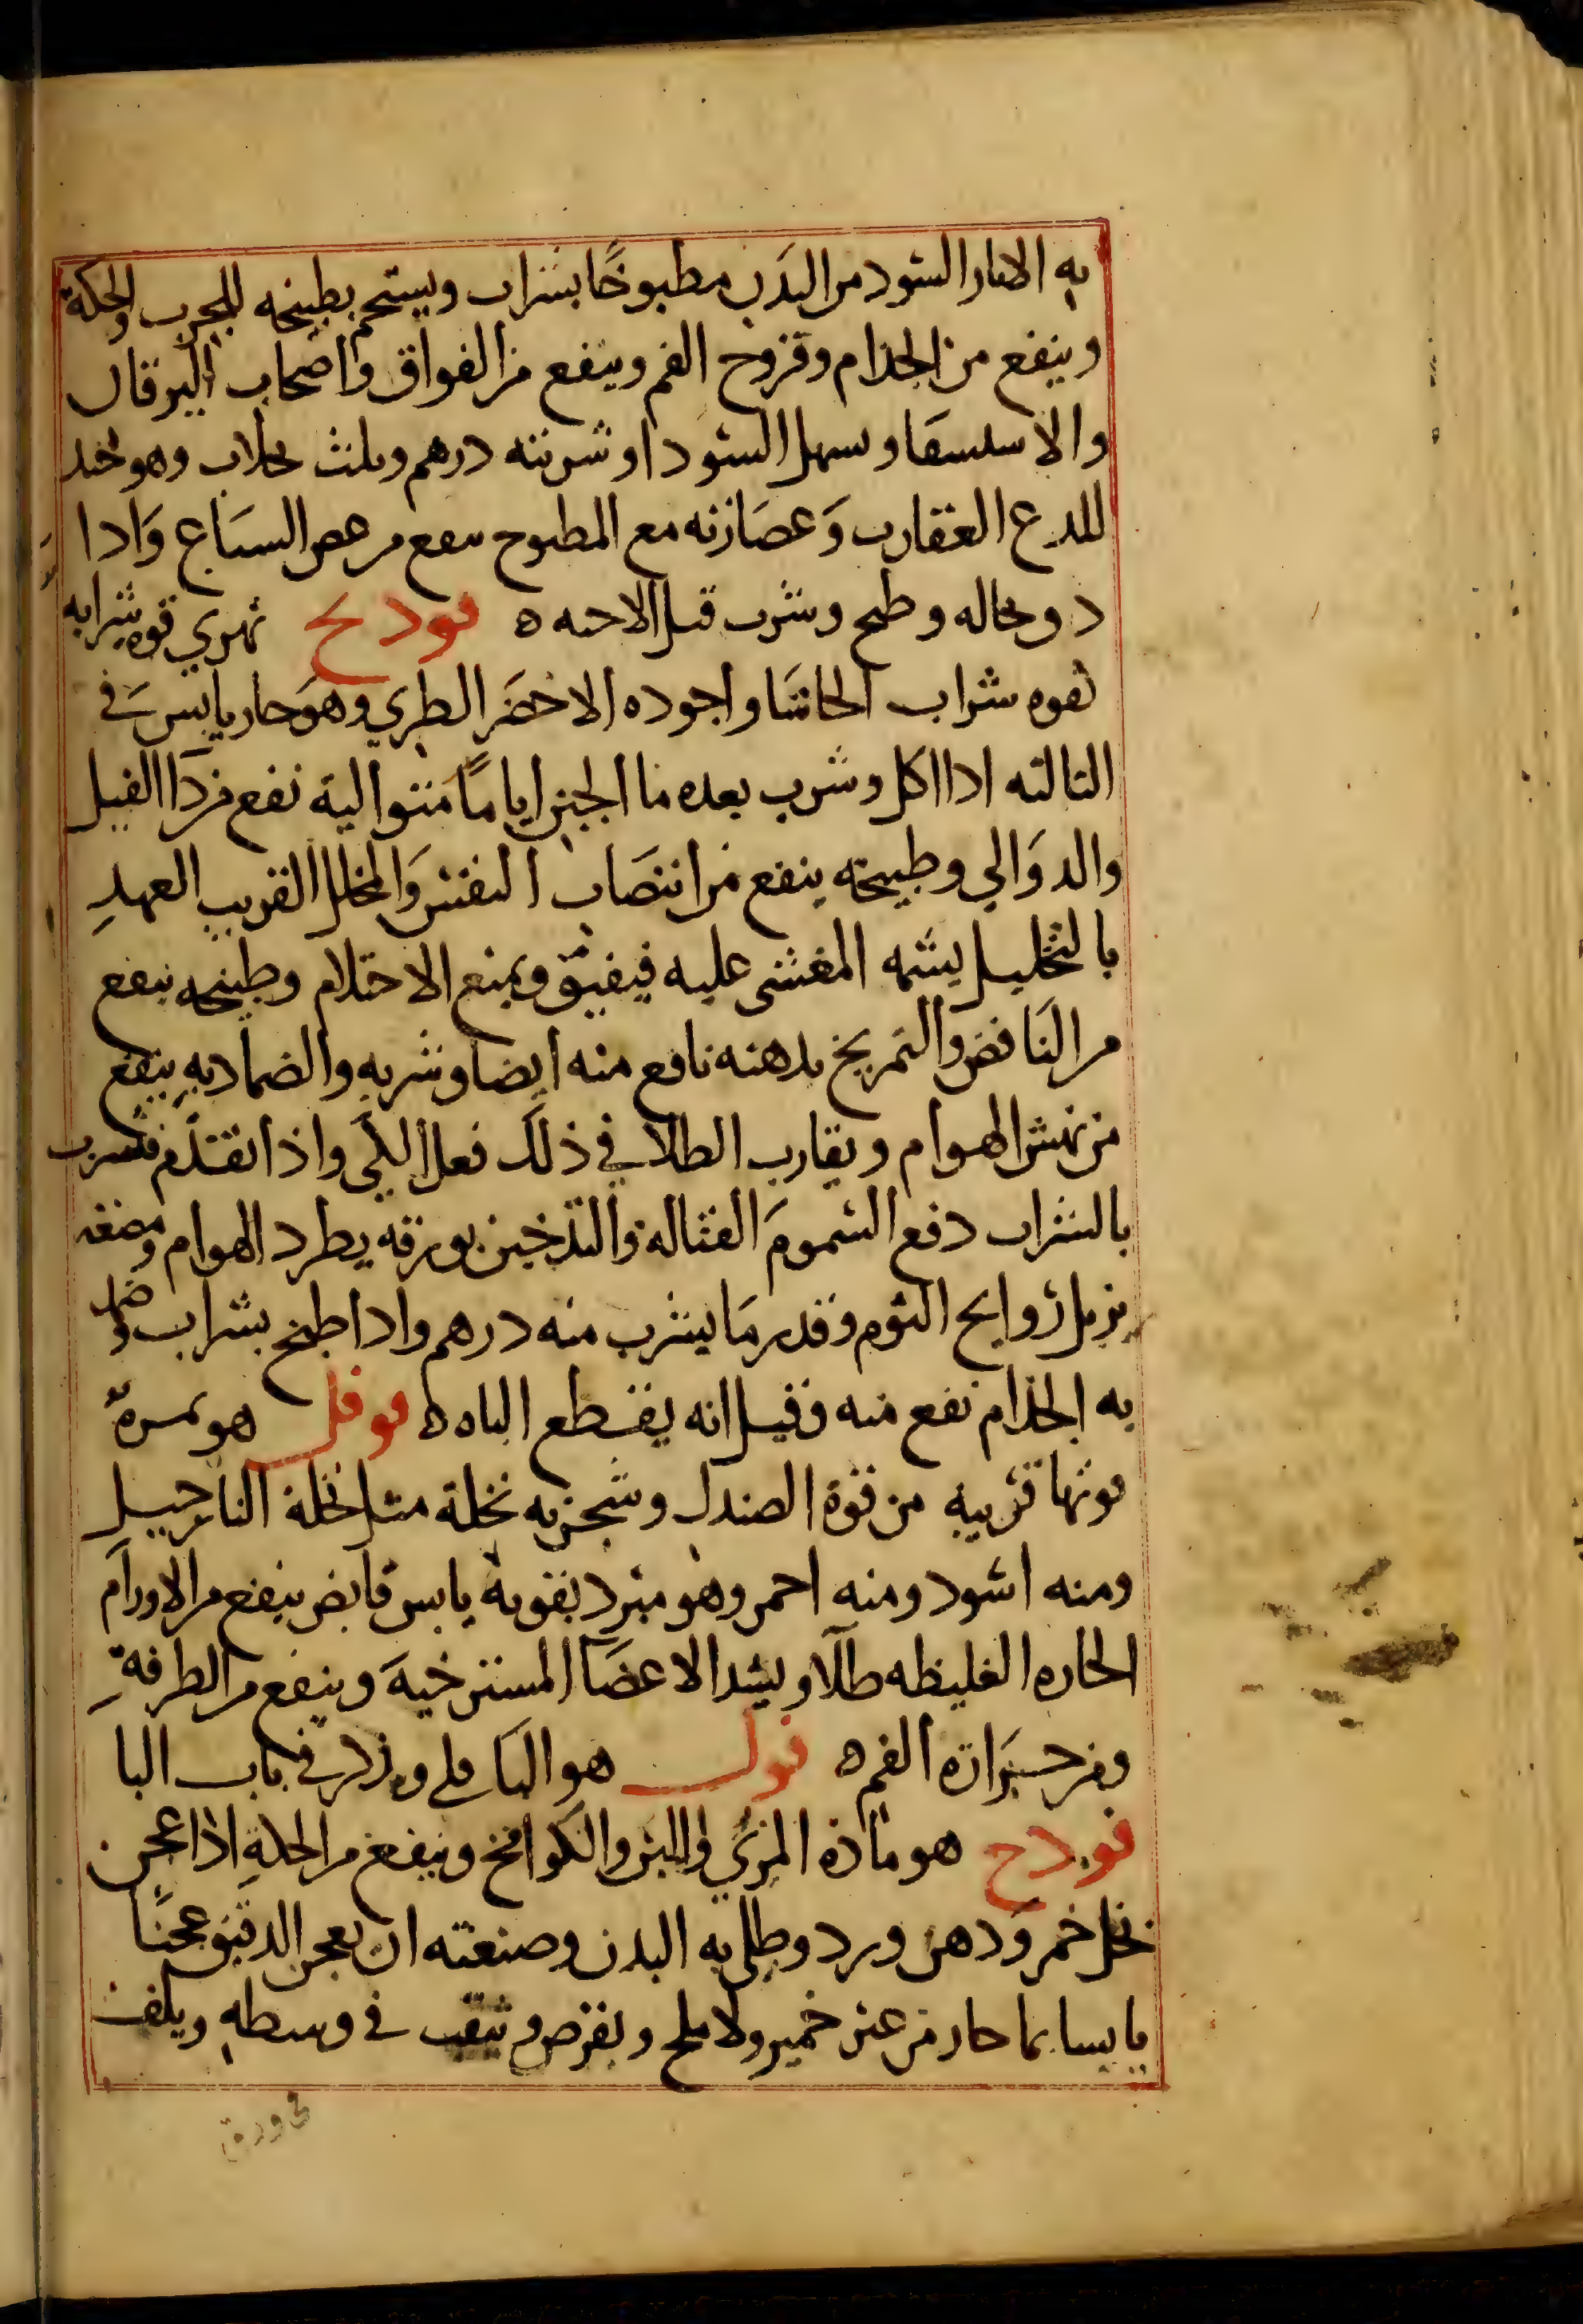 به الاثار السود من البدن مطبوخًا بشراب ويستحم بطبيخه للجرب والحكة
وينفع من الجذام وقروح الفم وينفع من الفواق واصحاب اليرقان
والاستسقا ويسهل السودا وشربته درهم وثلث بجلاب وهو جيد
للدع العقارب وَعصَارته مع المطبوخ ينفع من عض السبَاع وَاذا
د وبحاله وطبخ وشرب قتل الاجنه ه فودنج نهري قوه شرابه
كقوه شراب الحاشَا واجوده الاخضَر الطري وهوَ حار يابس في
الثالثه اذا اكل وشرب بعده ما الجبن اياما متوالية نفع من دآ الفيل
والدوَالي وطبيخه ينفع من انتصَاب النفس وَالمخلل القريب العهدِ
بالتخليل يشمه المغشى عليه فيفيق ويمنع الاحتلام وطبيخه ينفع
من النَافض والتمريخ بدهنه نافع منه ايضا وشربه والضماد بهِ ينفع
من نهش الهوام ويقارب الطلا في ذلك فعل الكي واذا تقدّم فشرب
بالشراب دفع السمومَ القتاله والتدخين بورقه يطرد الهوام ومضغه
يزيل روايح الثوم وقدر مَا يشرب منه درهم واذا طبخ بشراب وضمد
به الجذام نفع منه وقيل انه يقطع الباه ه فوفل هو ثمرة
قوتها قريبه من قوة الصندل وشجرته نخلة مثل نخلة النارجيل
ومنه اسود ومنه احمر وهو مبرد بقوبة يابس قابض ينفع من الاورام
الحاره الغليظه طلآ ويشد الاعضآ المسترخيهَ وينفع من الطرفةِ
ومن حَرَارة الفم ه فول هو الباقلي وذكر في باب البا
فودج هو مادة المري والبن والكوامخ وينفع من الحكةِ اذا عجن
بخل خمر وَدهن ورد وطلي به البدن وصنعته ان يعجن الدقيق عجنًا
يابسا بما حار من عير خمير ولا ملح ويقرص ويثقب في وسطه ويلف
في ورق